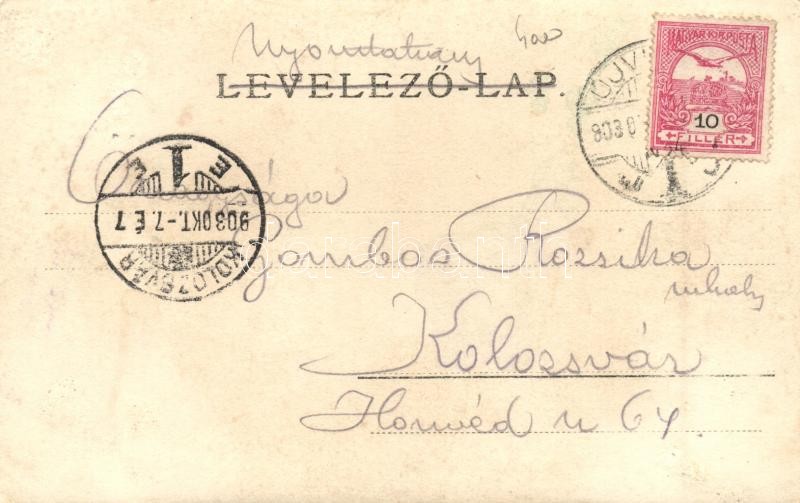 Nyomtatvány
LEVELEZŐ-LAP.
MAGYAR KIR. POSTA
10
FILLÉR
ÚJVI
903
KOLOZSVÁR
903 OKT. -7. É 7
1
Őnagysága
Gombos Rozsika
Kolozsvár
Honvéd u 64.